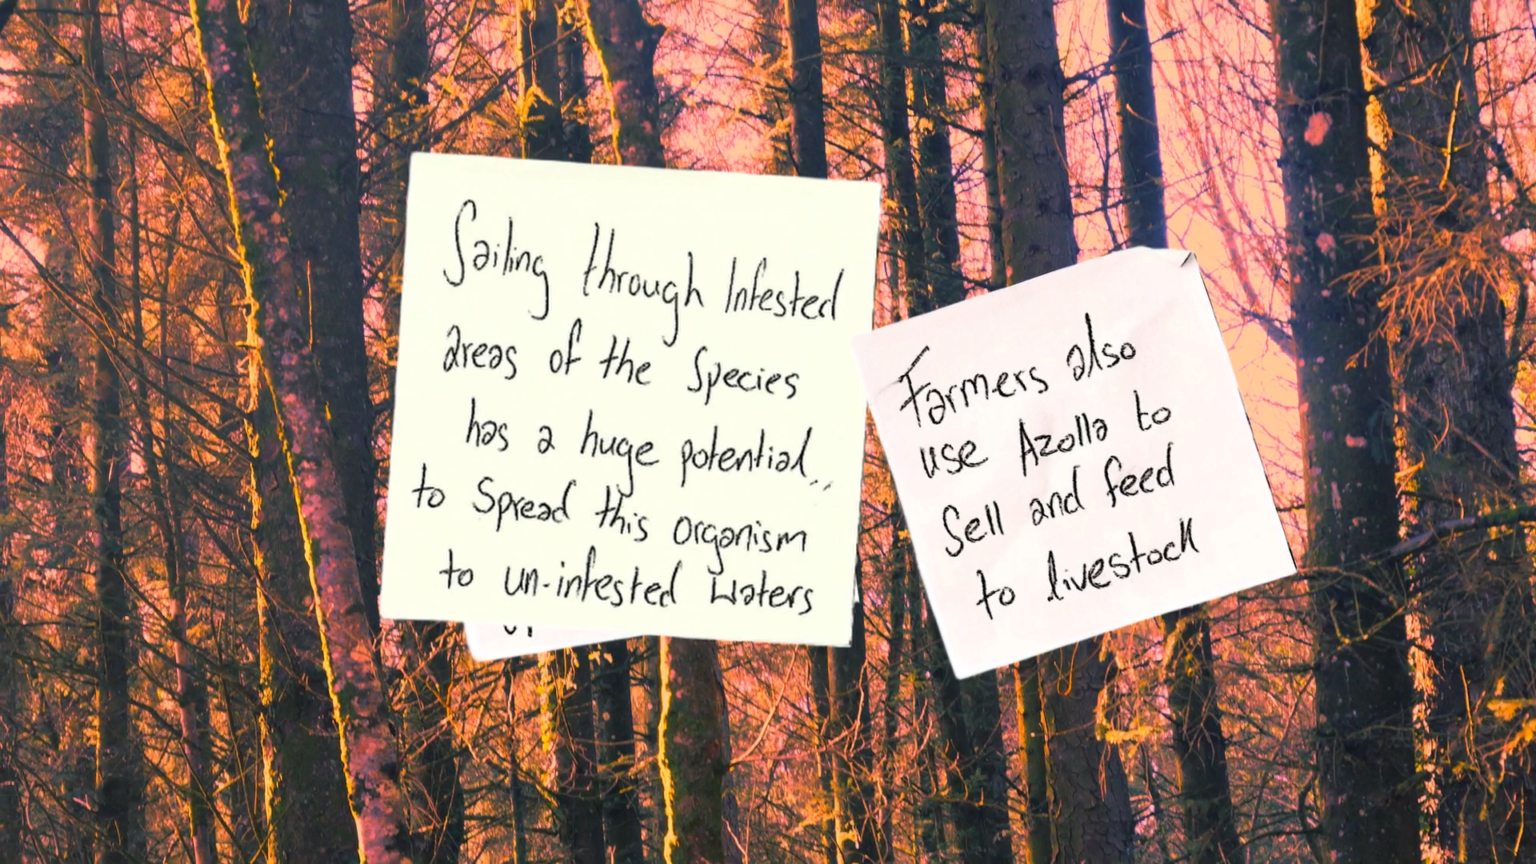 Sailing through Infested
areas of the Species
has a huge potential
to Spread this organism
to un-infested waters
Farmers also
use Azolla to
Sell and feed
to livestock